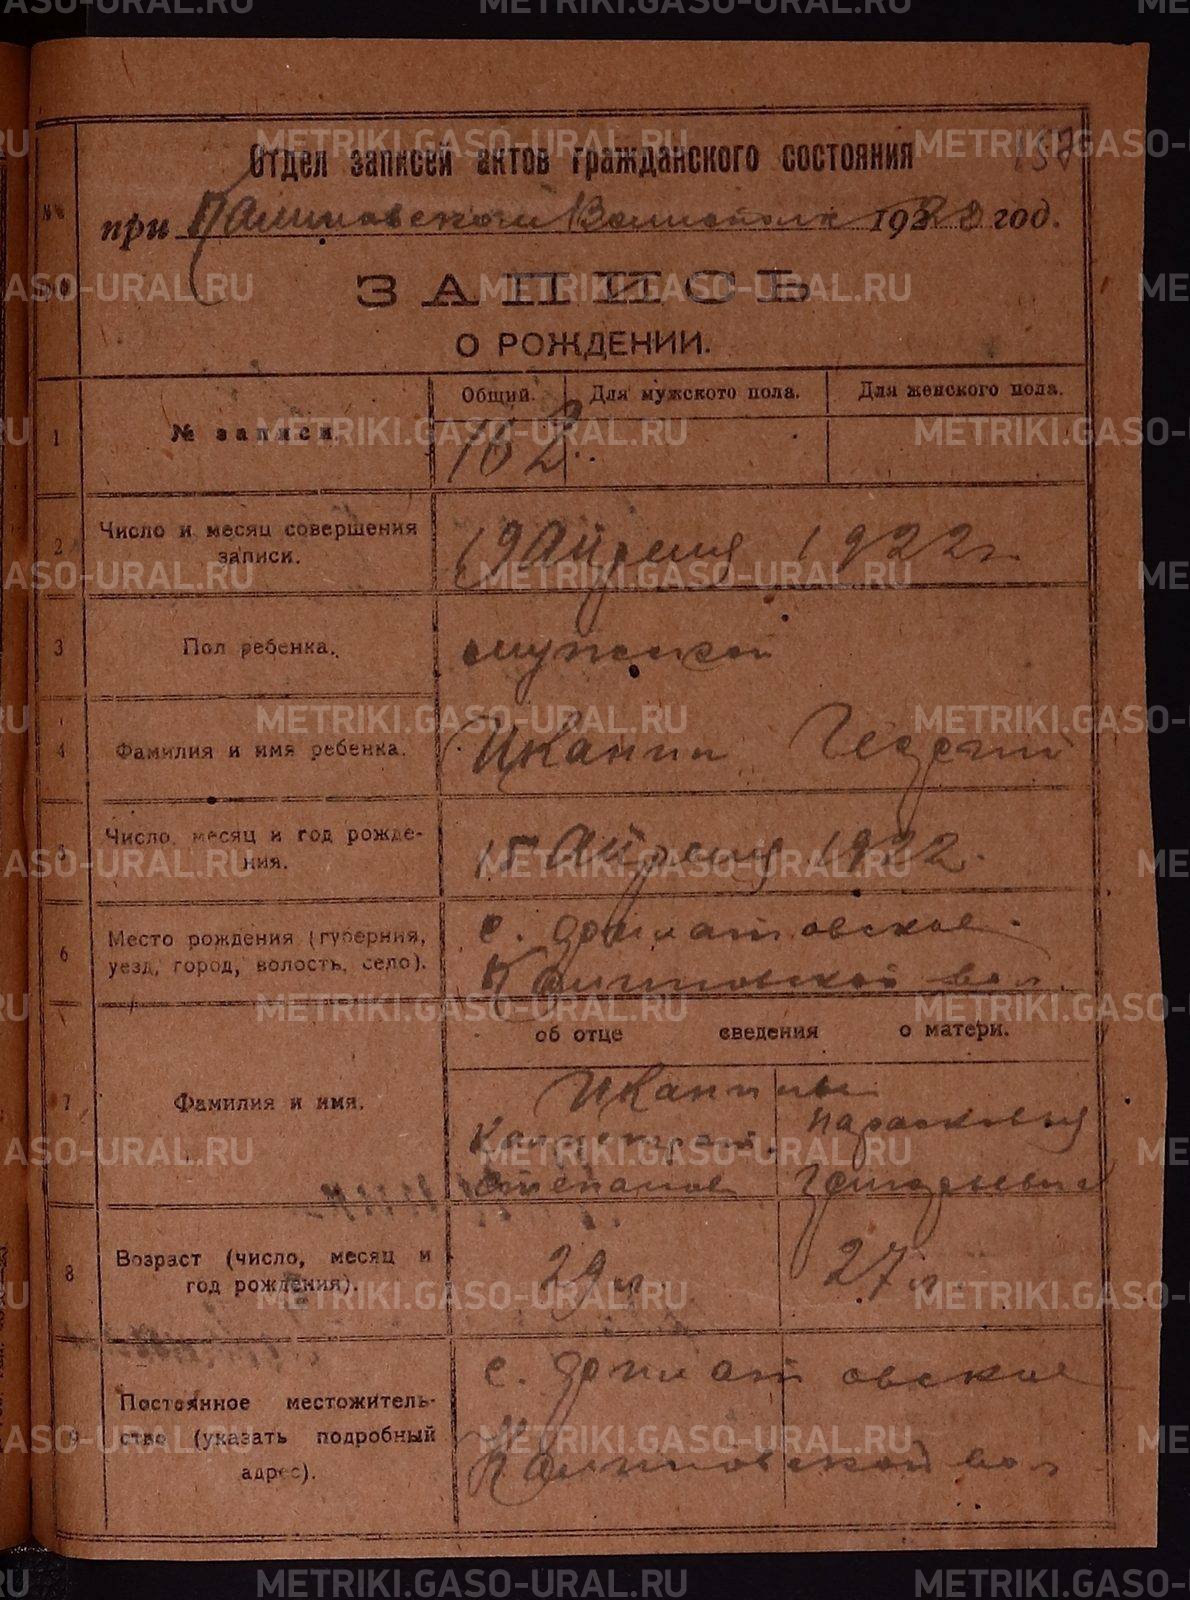 METRIKI.GASO-URAL.RU
157
Отдел записей актов гражданского состояния
при Калиновском Волисполк 1922 год.
№№
ЗАПИСЬ
О РОЖДЕНИИ.
Общий. Для мужского пола. Для женского пола.
1 № записи 162
2 Число и месяц совершения записи. 19 Апреля 1922 г.
3 Пол ребенка. мужской
4 Фамилия и имя ребенка. Иканин Георгий
5 Число, месяц и год рождения. 15 Апреля 1922.
6 Место рождения (губерния, уезд, город, волость, село). с.
Калиновской вол.
об отце сведения о матери.
7 Фамилия и имя. Иканины
Парасковья
Степанов
8 Возраст (число, месяц и год рождения). 29 л. 27 л.
9 Постоянное местожительство (указать подробный адрес). с.
Калиновской вол